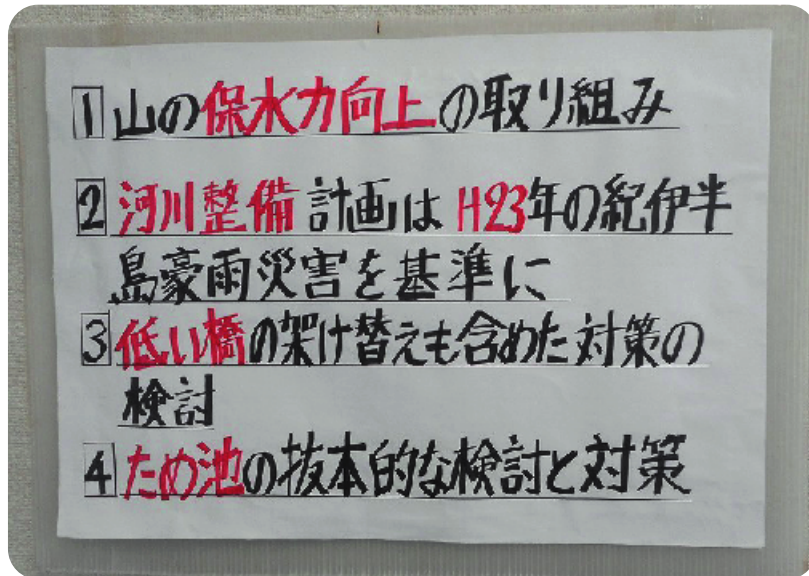 1 山の保水力向上の取り組み
2 河川整備計画は H23年の紀伊半
島豪雨災害を基準に
3 低い橋の架け替えも含めた対策の
検討
4 ため池の抜本的な検討と対策